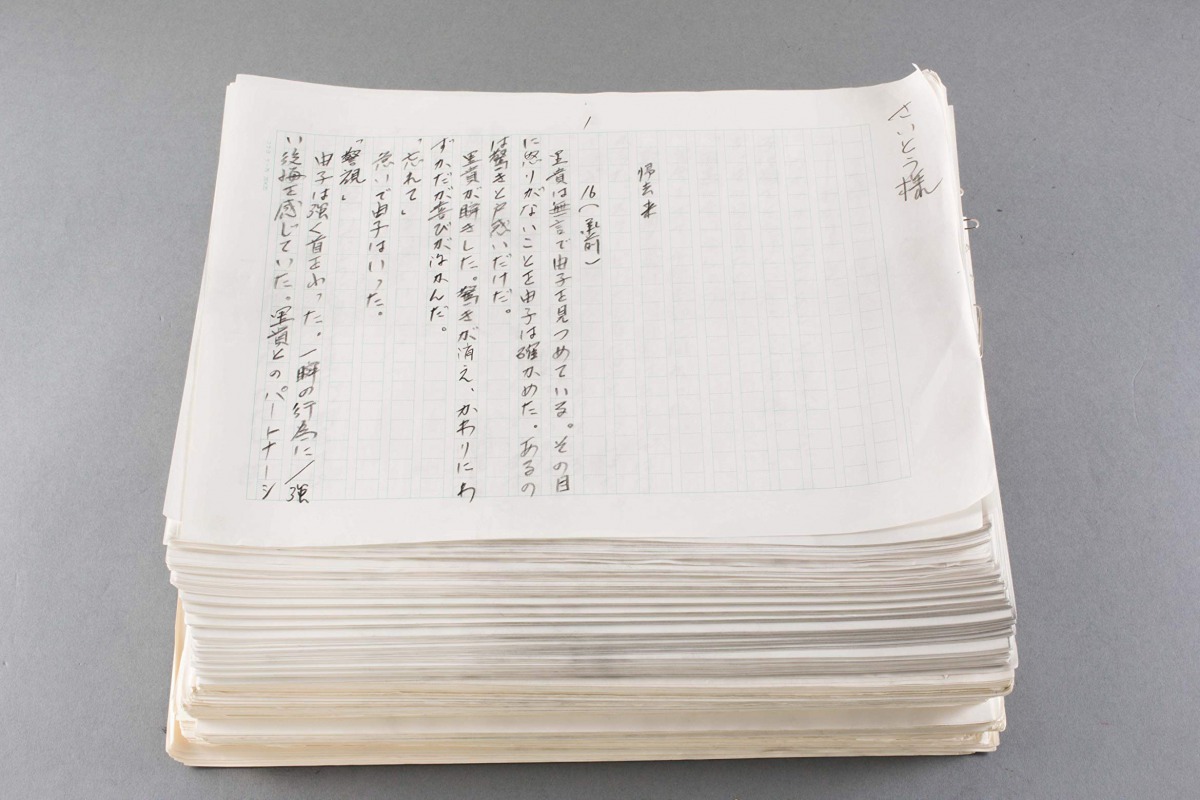 さいとう様
1
帰去来
16(承前)
里貴は無言で由子を見つめている。その目
に怒りがないことを由子は確かめた。あるの
は驚きと戸惑いだけだ。
里貴が瞬きした。驚きが消え、かわりにわ
ずかだが喜びが浮かんだ。
「忘れて」
急いで由子はいった。
「警視」
由子は強く首をふった。一瞬の行為に/強
い後悔を感じていた。里貴とのパートナーシ